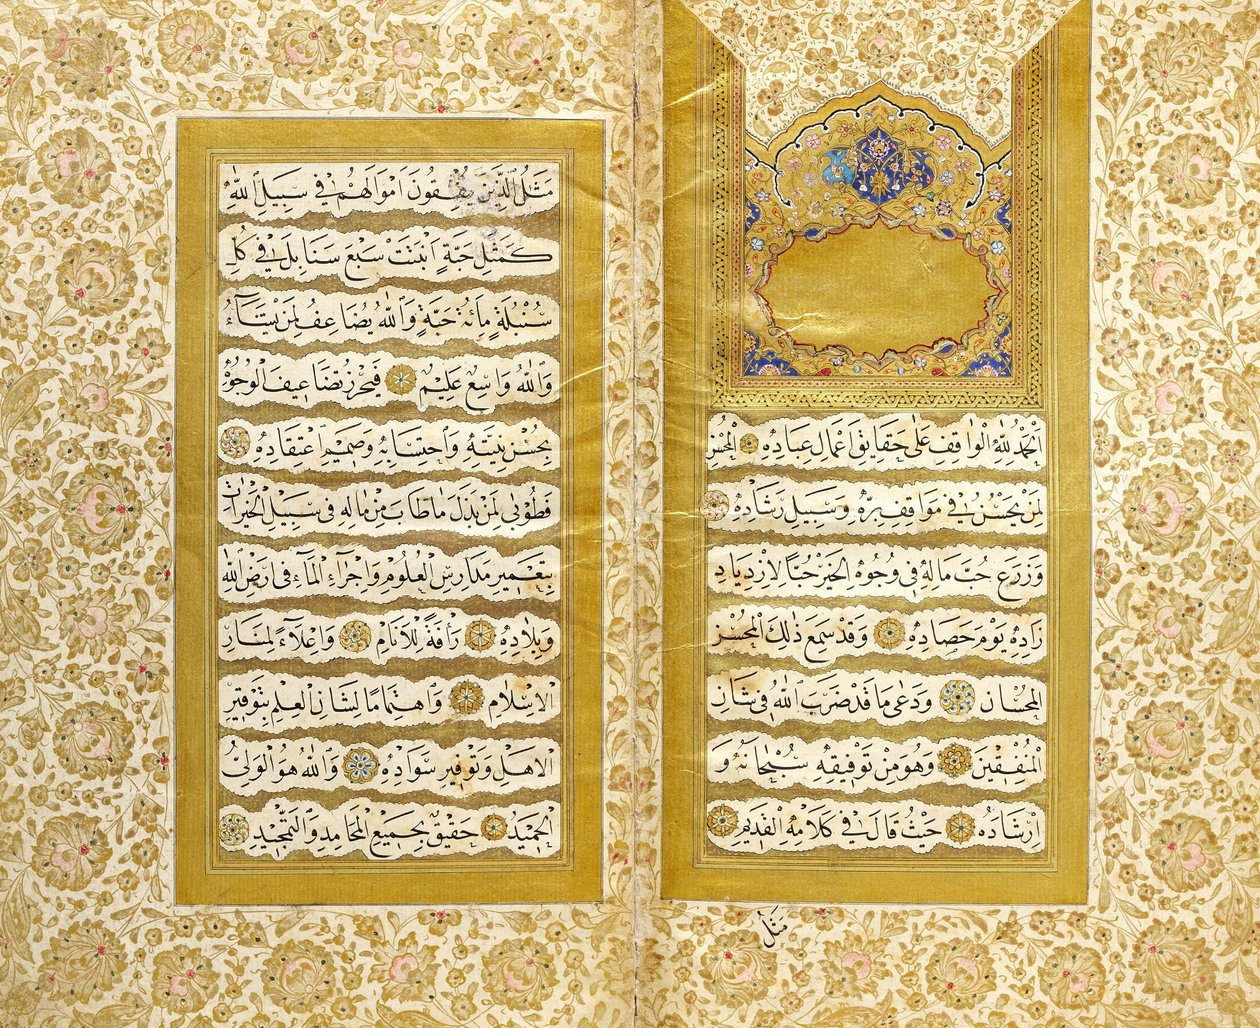 اَلْحَمْدُ لِلّٰهِ الْوَاقِفِ عَلٰى حَقَايِقِ اَعْمَالِ عِبَادِهٖ الْمُحْسِنِ
لِمَنْ يُحْسِنُ فِي مَوَاقِفِ بِرِّهٖ وَسَبِيلِ رَشَادِهٖ
وَزَرَعَ حُبَّ مَالِهٖ فِي وُجُوهِ الْخَيْرِ حُبًّا لِازْدِيَادِ
زَادِهٖ يَوْمَ حَصَادِهٖ وَقَدْ سَمِعَ ذٰلِكَ الْمُحْسِنُ
الْمِحْسَانُ وَدَعٰى مَا قَدْ ضَرَبَ اللّٰهُ فِي شَانِ
الْمُنْفِقِينَ وَهُوَ مِنْ تَوْفِيقِهٖ سُبْحَانَهُ وَ
اِرْشَادِهٖ حَيْثُ قَالَ فِي كَلَامِهِ الْقَدِيمِ
مَثَلُ
مَثَلُ الَّذِينَ يُنْفِقُونَ اَمْوَالَهُمْ فِي سَبِيلِ اللّٰهِ
كَمَثَلِ حَبَّةٍ اَنْبَتَتْ سَبْعَ سَنَابِلَ فِي كُلِّ
سُنْبُلَةٍ مِائَةُ حَبَّةٍ وَاللّٰهُ يُضَاعِفُ لِمَنْ يَشَآءُ
وَاللّٰهُ وَاسِعٌ عَلِيمٌ فَيُحْرِزُ ضَاعِيفَ الْوُجُوهِ
بِحُسْنِ نِيَّتِهٖ وَاحْتِسَابِهٖ وَصَمِيمِ اعْتِقَادِهٖ
فَطُوبٰى لِمَنْ بَذَلَ مَا طَابَ مِنْ مَالِهٖ فِي سَبِيلِ الْخَيْرَاتِ
بِتَعْمِيرِ مَدَارِسِ الْعُلُومِ وَاِجْرَآءِ الْمَآءِ فِي اَرْضِ اللّٰهِ
وَبِلَادِهٖ رَأْفَةً لِلْاَنَامِ وَاِعْلَآءً لِمَنَارِ
الْاِسْلَامِ وَاهْتِمَامًا لِشَانِ الْعِلْمِ بِتَوْقِيرِ
الْاَهْلِ وَتَوْفِيرِ سَوَادِهٖ وَاللّٰهُ هُوَ الْوَلِيُّ
الْحَمِيدُ حَقِيقٌ بِجَمِيعِ الْمَحَامِدِ وَالتَّمْجِيدِ